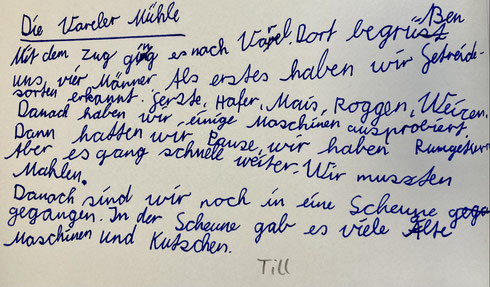 Die Vareler Mühle
Mit dem Zug ging es nach Varel. Dort begrüst Ben
uns vier Männer. Als erstes haben wir Getreide-
sorten erkannt. Gerste, Hafer, Mais, Roggen, Weizen.
Danach haben wir einige Maschinen ausprobiert.
Dann hatten wir Pause, wir haben
Aber es gang schnell weiter. Wir mussten
Mahlen.
Danach sind wir noch in eine Scheune
gegangen. In der Scheune gab es viele Alte
Maschinen und Kutschen.
Till